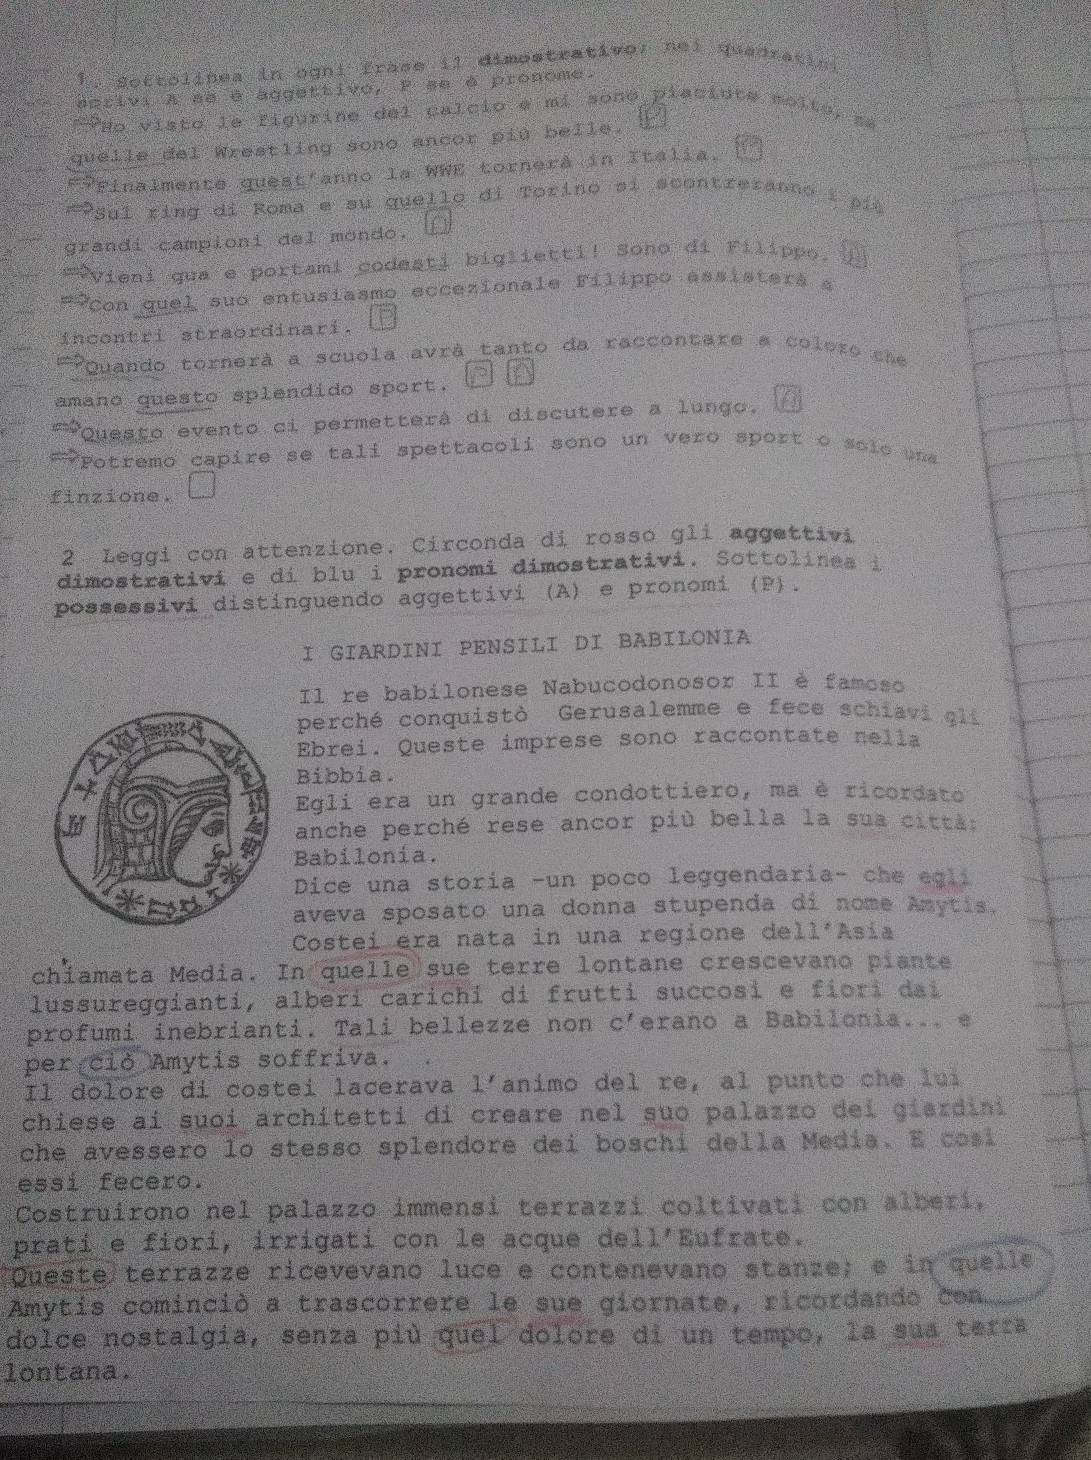 1. Sottolinea in ogni frase il dimostrativo; nei quadratini
scrivi A se è aggettivo, P se è pronome.
⇒Ho visto le figurine del calcio e mi sono piaciute molto, ma
quelle del Wrestling sono ancor più belle. P
⇒Finalmente quest'anno la WWE tornerà in Italia.
⇒Sul ring di Roma e su quello di Torino si scontreranno i più
grandi campioni del mondo.
⇒Vieni qua e portami codesti biglietti! Sono di Filippo. A
⇒Con quel suo entusiasmo eccezionale Filippo assisterà a
incontri straordinari. P
⇒Quando tornerà a scuola avrà tanto da raccontare a coloro che
amano questo splendido sport. P A
⇒Questo evento ci permetterà di discutere a lungo. A
⇒Potremo capire se tali spettacoli sono un vero sport o solo una
finzione.
2 Leggi con attenzione. Circonda di rosso gli aggettivi
dimostrativi e di blu i pronomi dimostrativi. Sottolinea i
possessivi distinguendo aggettivi (A) e pronomi (P).
I GIARDINI PENSILI DI BABILONIA
Il re babilonese Nabucodonosor II è famoso
perché conquistò Gerusalemme e fece schiavi gli
Ebrei. Queste imprese sono raccontate nella
Bibbia.
Egli era un grande condottiero, ma è ricordato
anche perché rese ancor più bella la sua città:
Babilonia.
Dice una storia -un poco leggendaria- che egli
aveva sposato una donna stupenda di nome Amytis.
Costei era nata in una regione dell'Asia
chiamata Media. In quelle sue terre lontane crescevano piante
lussureggianti, alberi carichi di frutti succosi e fiori dai
profumi inebrianti. Tali bellezze non c'erano a Babilonia... e
per ciò Amytis soffriva.
Il dolore di costei lacerava l'animo del re, al punto che lui
chiese ai suoi architetti di creare nel suo palazzo dei giardini
che avessero lo stesso splendore dei boschi della Media. E così
essi fecero.
Costruirono nel palazzo immensi terrazzi coltivati con alberi,
prati e fiori, irrigati con le acque dell'Eufrate.
Queste terrazze ricevevano luce e contenevano stanze; e in quelle
Amytis cominciò a trascorrere le sue giornate, ricordando con
dolce nostalgia, senza più quel dolore di un tempo, la sua terra
lontana.